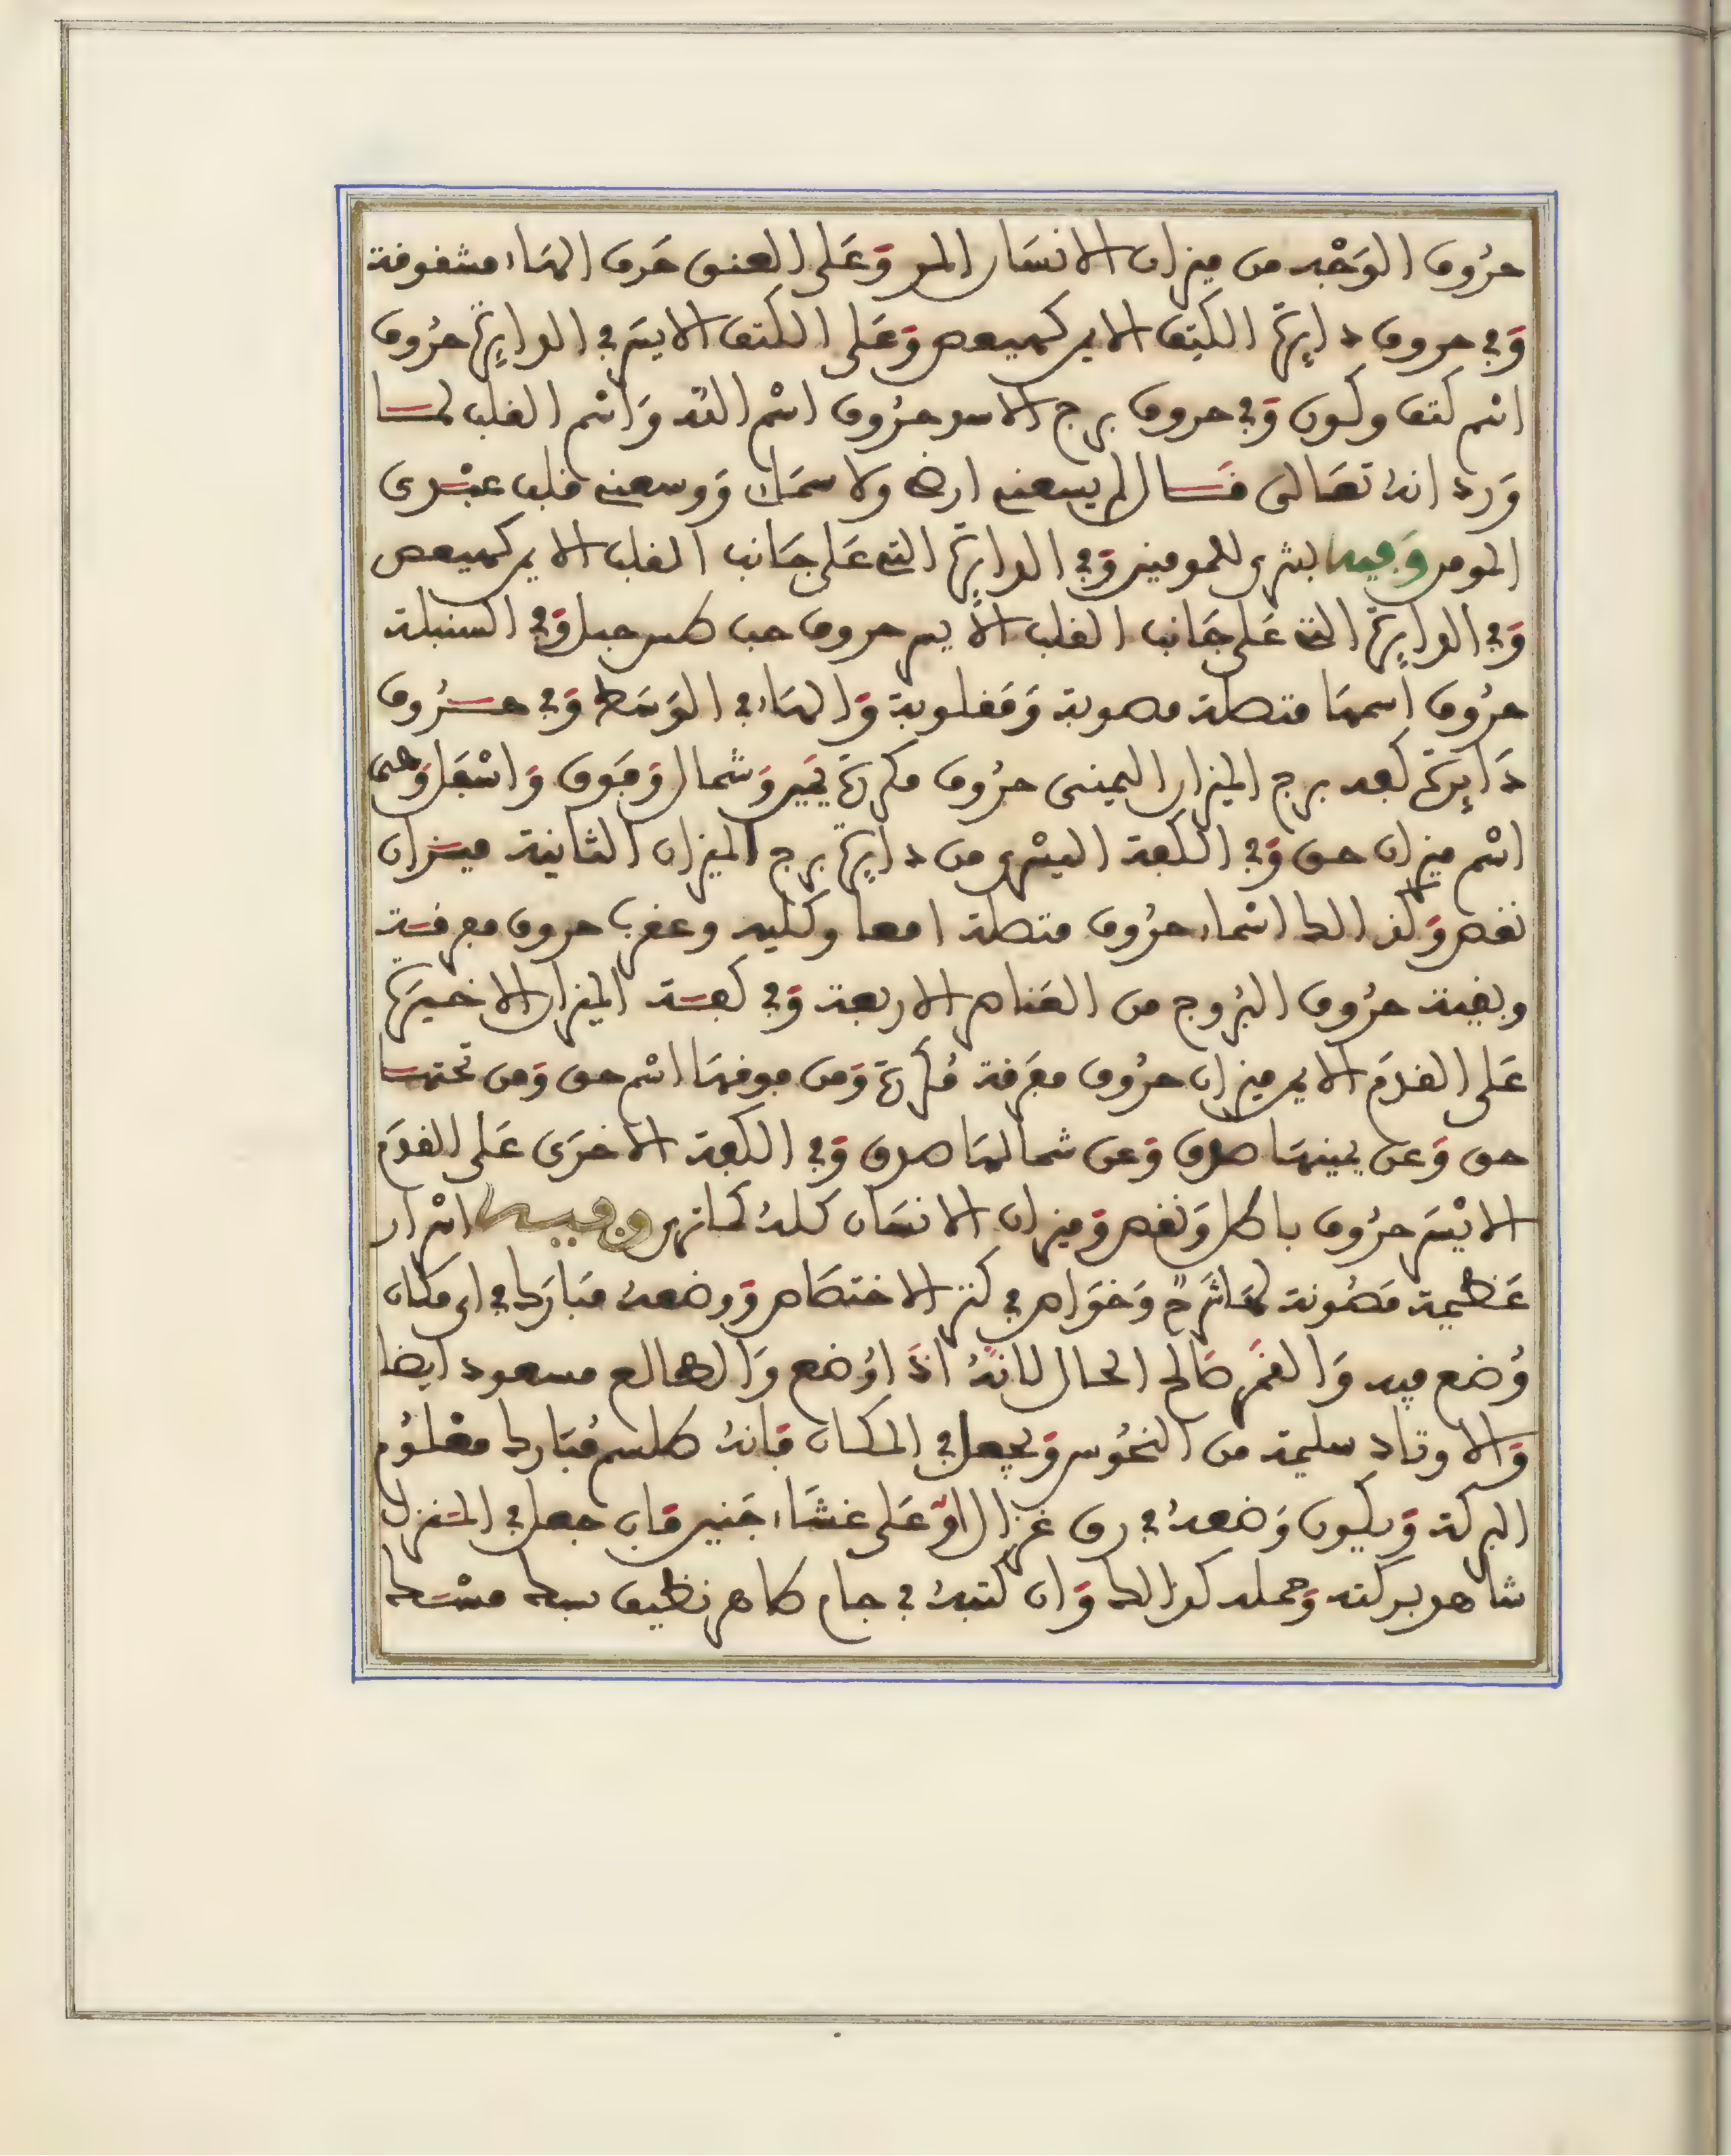 حرُوف الوَجْه من ميزان الانسَان المر وَعَلى العنق حَرف الهَاء مشقوقة
وَفي حروف دايرَة الكتف الايمن كهيعص وَعَلى الكتف الايسَر في الدايرَة حرُوف
اسْم كتف وكون وَفي حروف برج الاسد حرُوف اسْم الله وَاسْم القلب لمَا
وَرد انه تعَالى قَال لم يسعني ارضي ولا سمَائي وَوسعني قلب عبْدي
المومن وَفيه بشرى للمومنين وَفي الدايرَة التي عَلى جَانب القلب الايمن كهيعص
وَفي الدايرَة التي عَلى جَانب القلب الايسر حروف حب طس جبل وَفي السنبلة
حرُوف اسمهَا متصلة مصوبة وَمَقلوبة وَالهَاء في الوَسَط وَفي حرُوف
دَايرَة كفه برج الميزان اليمينى حرُوف مكررَة يَمين وَشمال وَفَوق وَاسْفَل وَهى
اسْم ميزان حق وَفي الكفة اليسْرى من دايرَة برج الميزان الثانية ميزَان
نقص وَكذالك اسْماء حرُوف متصلة امعا وكليه وعقرب حروف مفرقَة
وبقية حرُوف البرُوج من العَناصر الاربعة وَفي كفَة الميزان الاخيرَة
عَلى القدَم الايمن ميزان حرُوف مفَرقة مُكررَة وَمن فوقهَا اسْم حق وَمن تحتهَا
حق وَعن يمينهَا صدق وَعن شمالهَا صدق وَفي الكفة الاخرَى عَلى القدَم
الايْسَر حرُوف باطل وَنقص وَميزان الانسَان كلهُ كما ترى وفيه اسْرار
عَظيمة مَصُونة لهَا شرَح وَخوَاص في كنز الاختصَاص وَوضعهُ مبَارَك في اي مكان
وُضع فيه وَالقمَر صَالح الحال لانهُ اذَا وُضع وَالطالع مسعود ايضا
وَالاوتاد سليمة من النحُوس وَيجعل في المكان فَانهُ طلسم مُبَارك معْلوُم
البركة وَيكون وَضعهُ في رق غزال اوْ عَلى غشَاء جَنين فَان جعل في المنزل
شاهد بركته وَحمله كذالك وَان كتبهُ في جام طاهر نظيف بمسك